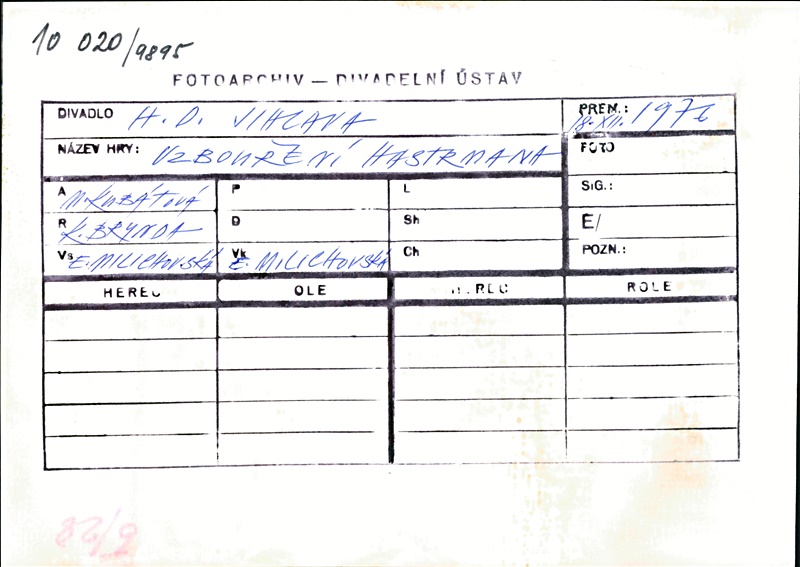 10 020/9895
FOTOARCHIV — DIVADELNÍ ÚSTAV
DIVADLO H. D. JIHLAVA PREM.: 18. XII. 1976
NÁZEV HRY: VZBOUŘENÍ HASTRMANA FOTO
A M. KUBÁTOVÁ P L SIG.:
R K. BRYNDA D Sh E/
Vs E. MILICHOVSKÁ Vk E. MILICHOVSKÁ Ch POZN.:
HEREC OLE H.REC ROLE
82/9